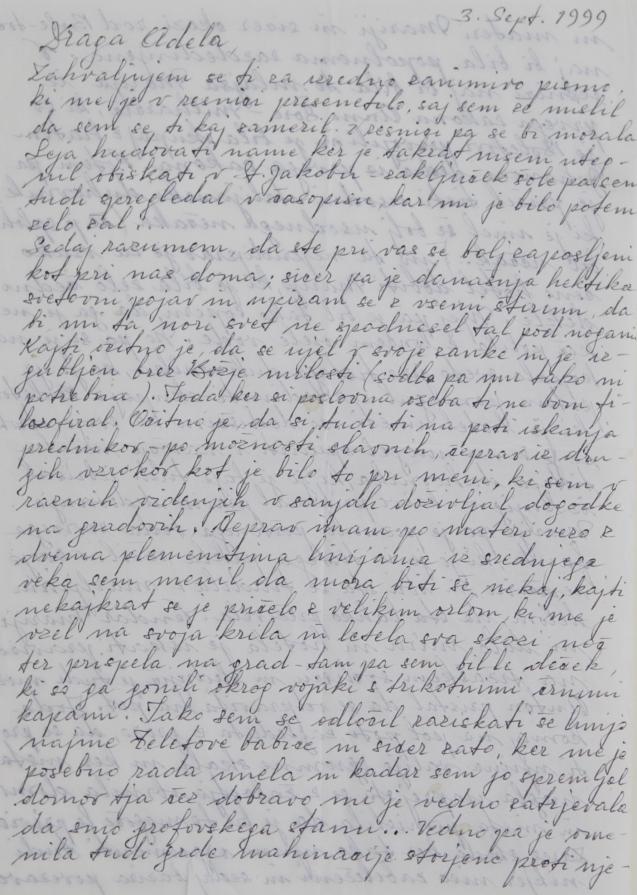 3. Sept. 1999
Draga Adela,
Zahvaljujem se ti za izredno zanimivo pismo,
ki me je v resnici presenetilo, saj sem že mislil
da sem se ti kaj zameril. V resnici pa se bi morala
Leja hudovati name ker je takrat nisem uteg-
nil obiskati v St. Jakobu - zaključek šole pa sem
tudi spregledal v časopisu kar mi je bilo potem
zelo žal..
Sedaj razumem, da ste pri vas še bolj zaposljeni
kot pri nas doma; sicer pa je današnja hektika
svetovni pojav in upiram se z vsemi štirimi, da
bi mi ta nori svet ne spodnesel tal pod nogami
Kajti očitno je, da se ujel v svoje zanke in je iz-
gubljen brez Božje milosti (sodba pa mu tako ni
potrebna). Toda ker si poslovna oseba ti ne bom fi-
lozofiral. Očitno je, da si tudi ti na poti iskanja
prednikov - po možnosti slavnih, čeprav iz dru-
gih vzrokov kot je bilo to pri meni, ki sem v
raznih videnjih v sanjah doživljal dogodke
na gradovih. Čeprav imam po materi vezo z
dvema plemenitima linijama iz srednjega
veka sem menil da mora biti še nekaj, kajti
nekajkrat se je pričelo z velikim orlom ki me je
vzel na svoja krila in letela sva skozi noč
ter prispela na grad - tam pa sem bil le deček,
ki so ga gonili okrog vojaki s trikotnimi črnimi
kapami. Tako sem se odločil raziskati še linijo
najine Zeletove babice in sicer zato, ker me je
posebno rada imela in kadar sem jo spremljal
domov tja čez dobravo mi je vedno zatrjevala
da smo grofovskega stanu... Vedno pa je ome-
nila tudi grde mahinacije storjene proti nje-